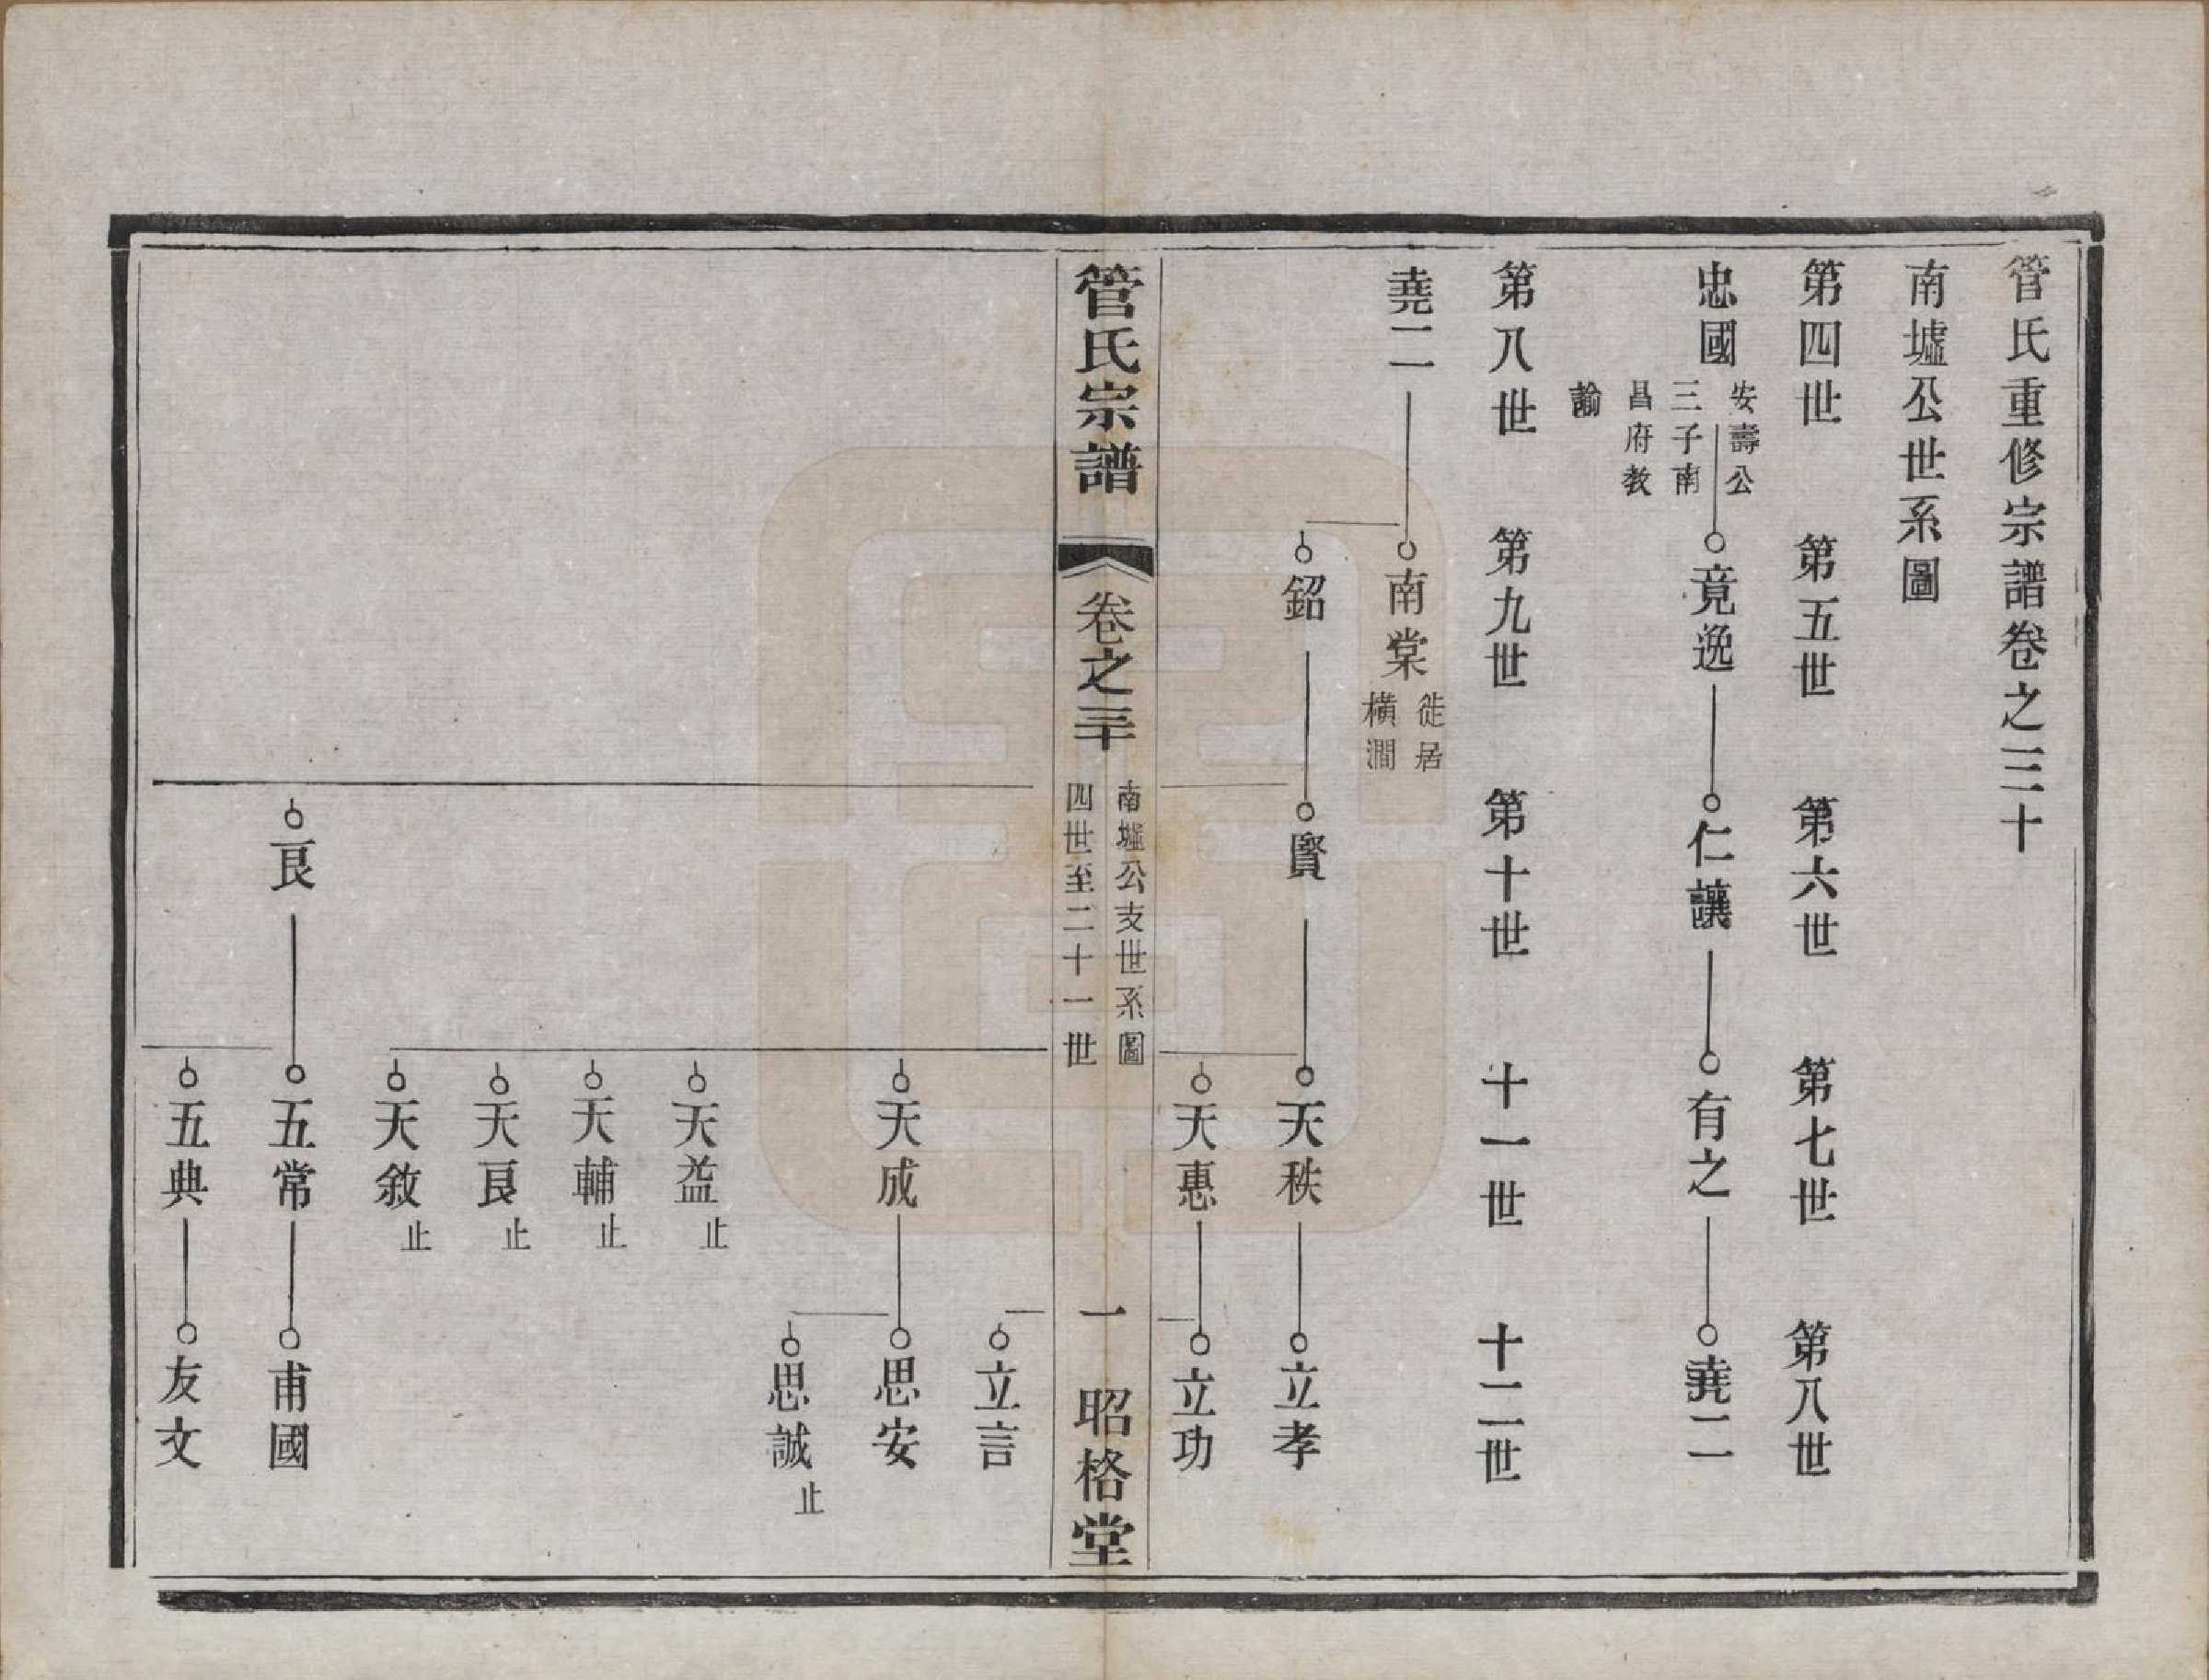 管氏重修宗譜卷之三十
南墟公世系圖
第四世　第五世　第六世　第七世　第八世
忠國　安壽公三子南昌府教諭　竟逸　仁讓　有之　堯二
第八世　第九世　第十世　十一世　十二世
堯二　南棠　徙居橫澗
銘　賢　天秩　立孝
天惠　立功
管氏宗譜　卷之三十　南墟公支世系圖四世至二十一世　一　昭格堂
立言
天成　思安
思誠　止
天益　止
天輔　止
天良　止
天敘　止
良　五常　甫國
五典　友文